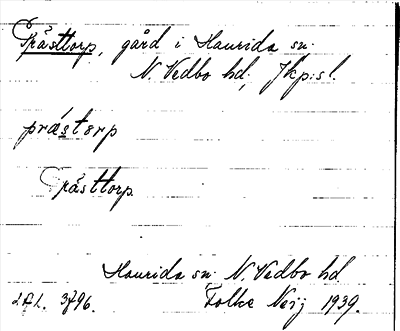 Prästtorp, gård i Haurida sn.
N. Vedbo hd. Jkp:s l.
præstsrp
Prästtorp
Haurida sn. N. Vedbo hd
L.A.L. 3796. Folke Neij 1939.